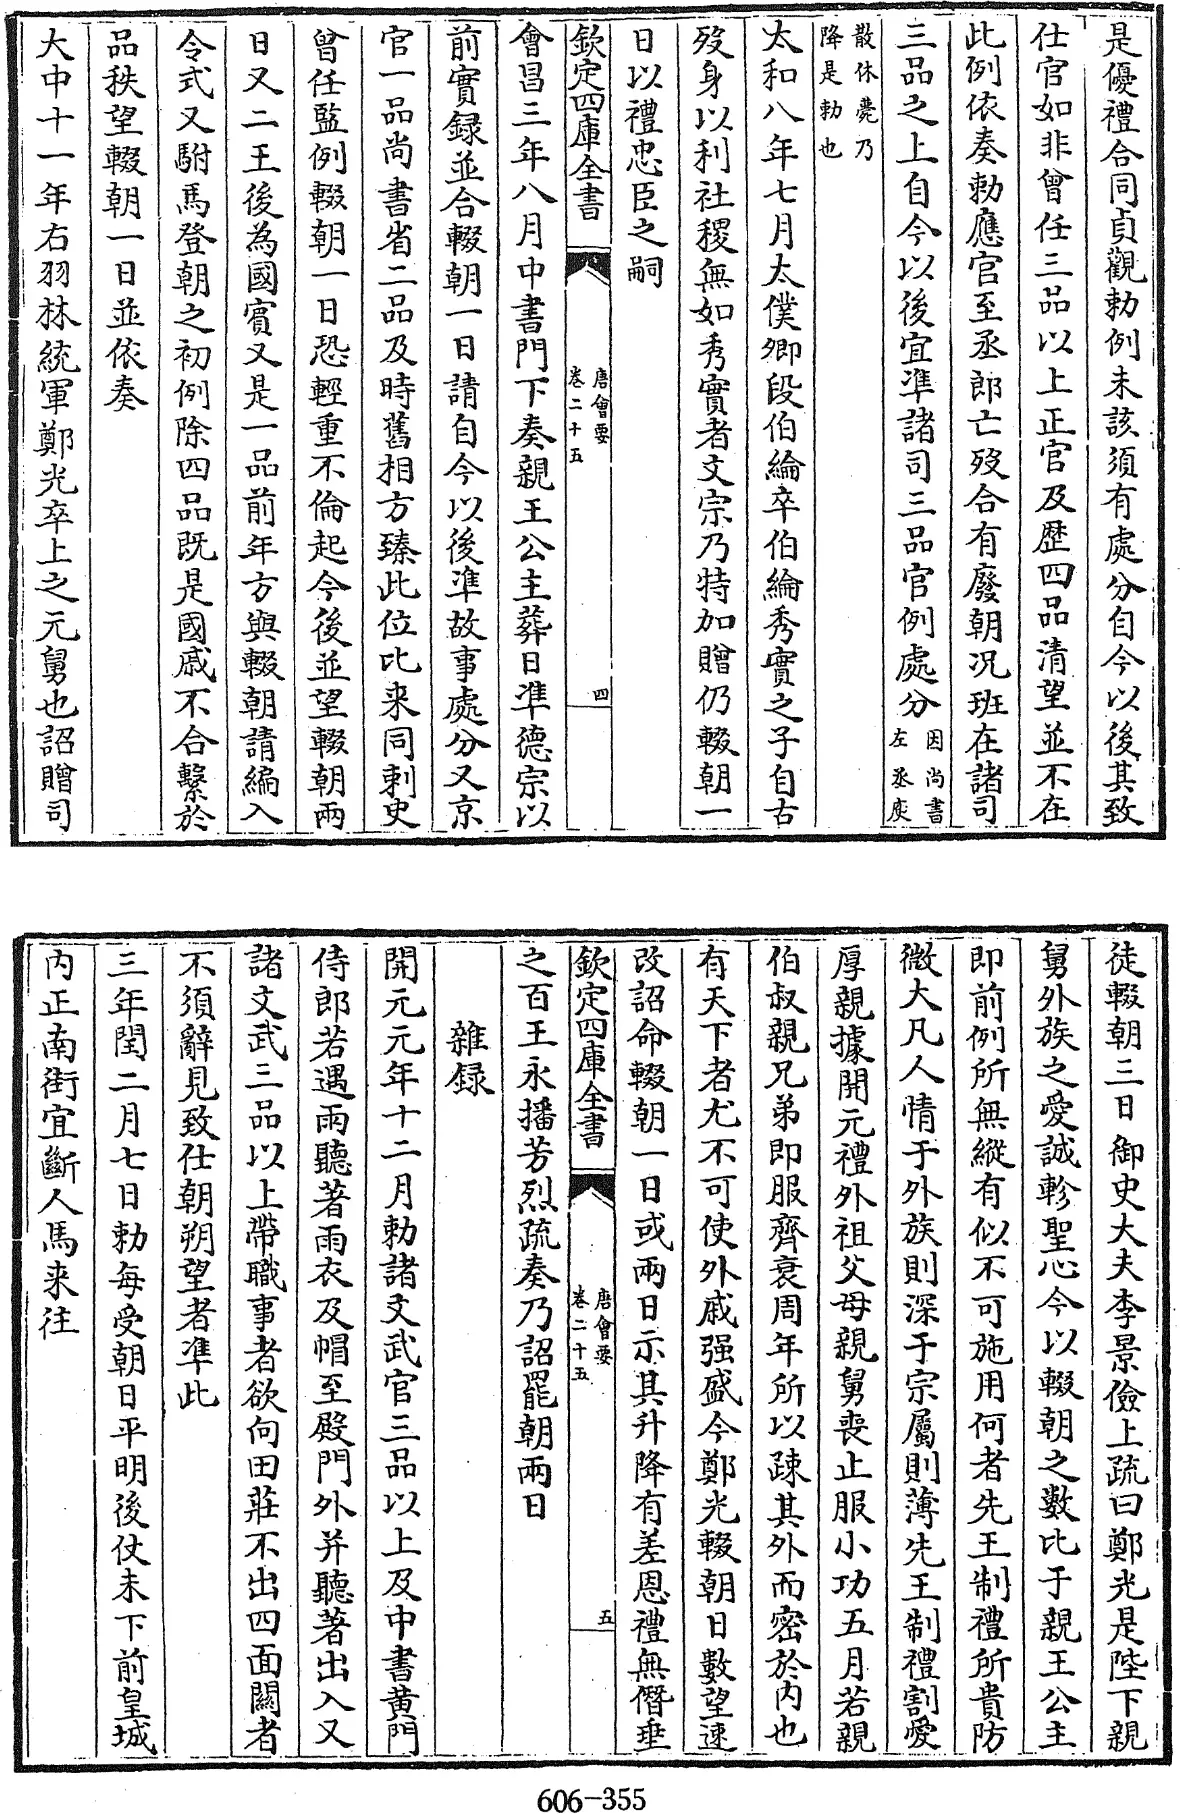 是優禮合同貞觀勅例未該須有處分自今以後其致
仕官如非曾任三品以上正官及歴四品清望並不在
此例依奏勅應官至丞郎亡歿合有廢朝况班在諸司
三品之上自今以後宜準諸司三品官例處分因尚書左丞庾
散休薨乃降是勅也
太和八年七月太僕卿段伯綸卒伯綸秀實之子自古
歿身以利社稷無如秀實者文宗乃特加贈仍輟朝一
日以禮忠臣之嗣
欽定四庫全書
唐會要
卷二十五
四
會昌三年八月中書門下奏親王公主葬日準德宗以
前實録並合輟朝一日請自今以後準故事處分又京
官一品尚書省二品及時舊相方臻此位比来同刺史
曾任監例輟朝一日恐輕重不倫起今後並望輟朝兩
日又二王後為國賓又是一品前年方與輟朝請編入
令式又駙馬登朝之初例除四品既是國戚不合繫於
品秩望輟朝一日並依奏
大中十一年右羽林統軍鄭光卒上之元舅也詔贈司
徒輟朝三日御史大夫李景儉上疏曰鄭光是陛下親
舅外族之愛誠軫聖心今以輟朝之數比于親王公主
即前例所無縱有似不可施用何者先王制禮所貴防
微大凡人情于外族則深于宗屬則薄先王制禮割愛
厚親據開元禮外祖父母親舅喪止服小功五月若親
伯叔親兄弟即服齊衰周年所以疎其外而密於内也
有天下者尤不可使外戚强盛今鄭光輟朝日數望速
改詔命輟朝一日或兩日示其升降有差恩禮無僭垂
欽定四庫全書
唐會要
卷二十五
五
之百王永播芳烈疏奏乃詔罷朝兩日
雜録
開元元年十二月勅諸文武官三品以上及中書黄門
侍郎若遇雨聽著雨衣及帽至殿門外并聽著出入又
諸文武三品以上帶職事者欲向田莊不出四面關者
不須辭見致仕朝朔望者準此
三年閏二月七日勅每受朝日平明後仗未下前皇城
内正南街宜斷人馬来往
606-355